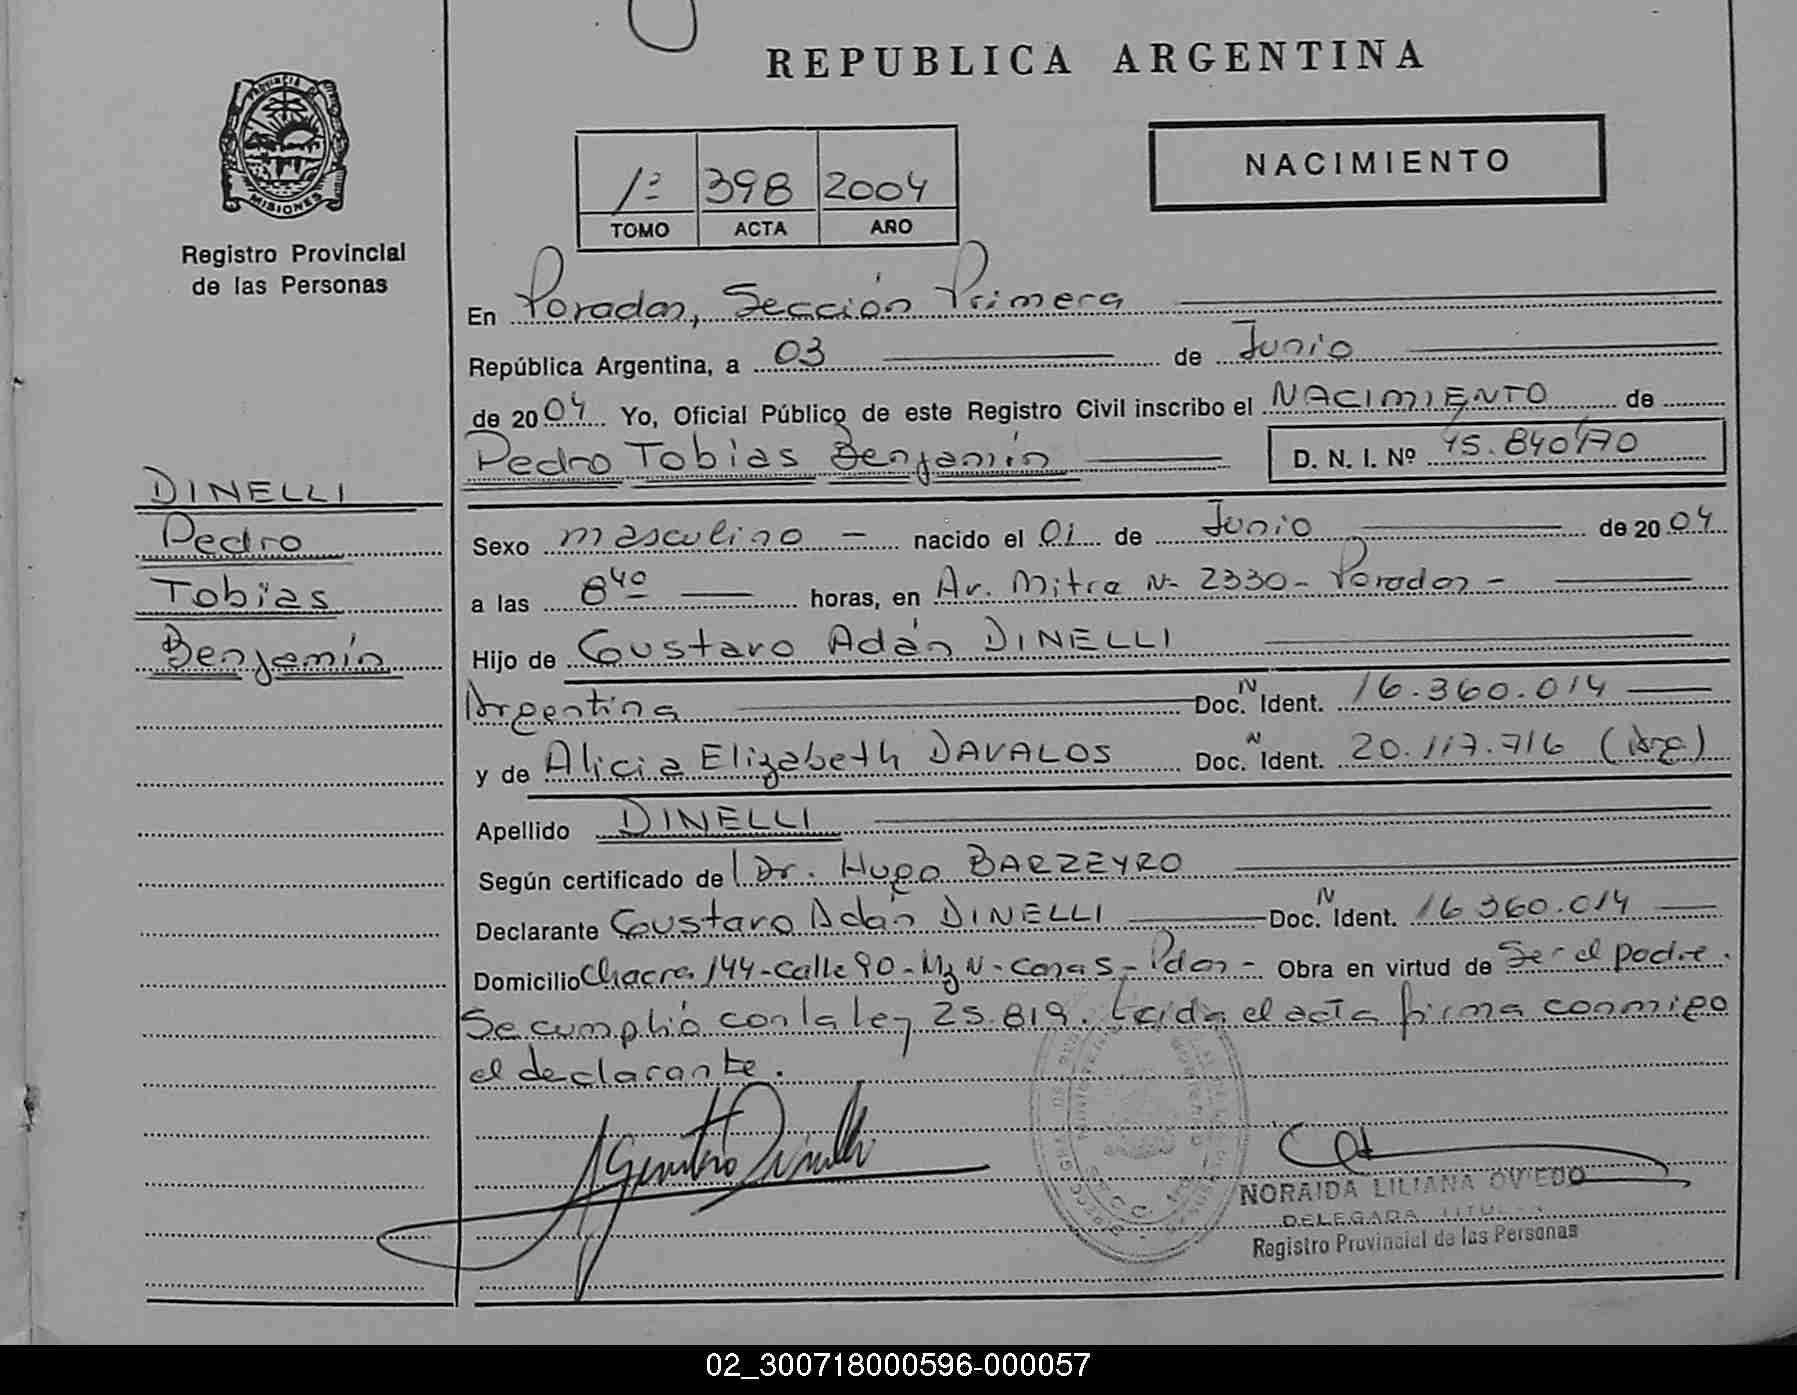 REPUBLICA ARGENTINA
PROVINCIA DE
MISIONES
Registro Provincial
de las Personas
1º 398 2004
TOMO ACTA AÑO
NACIMIENTO
En Posadas, Sección Primera
República Argentina, a 03 de Junio
de 2004 Yo, Oficial Público de este Registro Civil inscribo el NACIMIENTO de
Pedro Tobias Benjamín D. N. I. Nº 45.840470
DINELLI
Pedro
Tobias
Benjamín
Sexo masculino - nacido el 01 de Junio de 2004
a las 8 40 horas, en Av. Mitre Nº 2330 - Posadas -
Hijo de Gustavo Adán DINELLI
Argentina Doc. N Ident. 16.360.014
y de Alicia Elizabeth DAVALOS Doc. N Ident. 20.117.716 (Arg)
Apellido DINELLI
Según certificado de Dr. Hugo BARZEYRO
Declarante Gustavo Adán DINELLI Doc. N Ident. 16 360.014
Domicilio Chacra 144 - Calle 90 - Mz N - Casa 5 - Pdas - Obra en virtud de Ser el padre.
Se cumplió con la ley 25.819. Leída el acta firma conmigo
el declarante.
NORAIDA LILIANA OVIEDO
DELEGADA TITULAR
Registro Provincial de las Personas
02_300718000596-000057